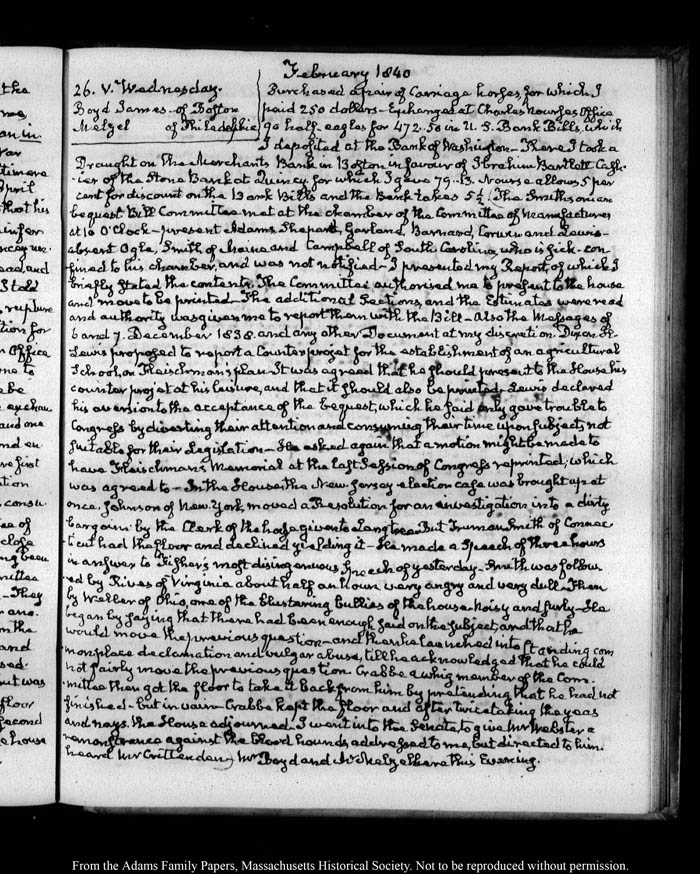 February 1840
26. V. Wednesday.
Boyd James - of Boston
Melzel of Philadelphia
Purchased a pair of Carriage horses, for which I
paid 250 dollars - Exchanged at Charles Nourse's Office
90 half-eagles for 472.50 in U.S. Bank Bills, which
I deposited at the Bank of Washington - There I took a
Draught on the Merchants Bank in Boston in favour of Ibrahim Bartlett Cash-
ier of the Stone Bank at Quincy, for which I gave 79. Nourse allows 5 per
cent for discount on the Bank Bills and the Bank takes 5½. The Smithsonian
bequest Bill Committee met at the chamber of the Committee of Manufactures
at 10 O'Clock - present Adams, Shepard, Garland, Barnard, Corwin and Lewis -
absent Ogle, Smith of Maine and Campbell of South Carolina, who is sick - con-
fined to his chamber, and was not notified - I presented my Report, of which I
briefly stated the contents. The Committee authorized me to present to the house
and move to be printed - The additional Sections, and the Estimates were read
and authority was given me to report them with the Bill - Also the Messages of
6 and 7. December 1838. and any other Document at my discretion. Dixon H.
Lewis proposed to report a Counter projet for the establishment of an agricultural
School, on Fleischman's plan. It was agreed that he should present to the House his
counter projet at his leisure, and that it should also be printed. Lewis declared
his aversion to the acceptance of the bequest, which he said only gave trouble to
Congress by diverting their attention and consuming their time upon subjects not
suitable for their Legislation - He asked again that a motion might be made to
have Fleischman's Memorial at the last Session of Congress reprinted, which
was agreed to - In the House the New Jersey election case was brought up at
once. Johnson of New York moved a Resolution for an investigation into a dirty
bargain by the Clerk of the house given to Langtree. But Truman Smith of Connec-
ticut had the floor and declined yielding it - He made a Speech of three hours
in answer to Fisher's most disingenuous Speech of yesterday - Smith was follow-
ed by Rives of Virginia about half an hour very angry and very dull - Then
by Weller of Ohio, one of the blustering bullies of the house - noisy and surly - He
began by saying that there had been enough said on the subject, and that he
would move the previous question - and then he launched into standing com-
monplace declamation and vulgar abuse, till he acknowledged that he could
not fairly move the previous question. Crabb a whig member of the Com-
mittee then got the floor to take it back from him by pretending that he had not
finished - but in vain - Crabb kept the floor and after twice taking the yeas
and nays, the House adjourned. I went into the Senate to give Mr Webster a
remonstrance against the blood hounds addressed to me, but directed to him.
heard Mr Crittenden, Mr Boyd and Mr Melzel here this Evening.
From the Adams Family Papers, Massachusetts Historical Society. Not to be reproduced without permission.